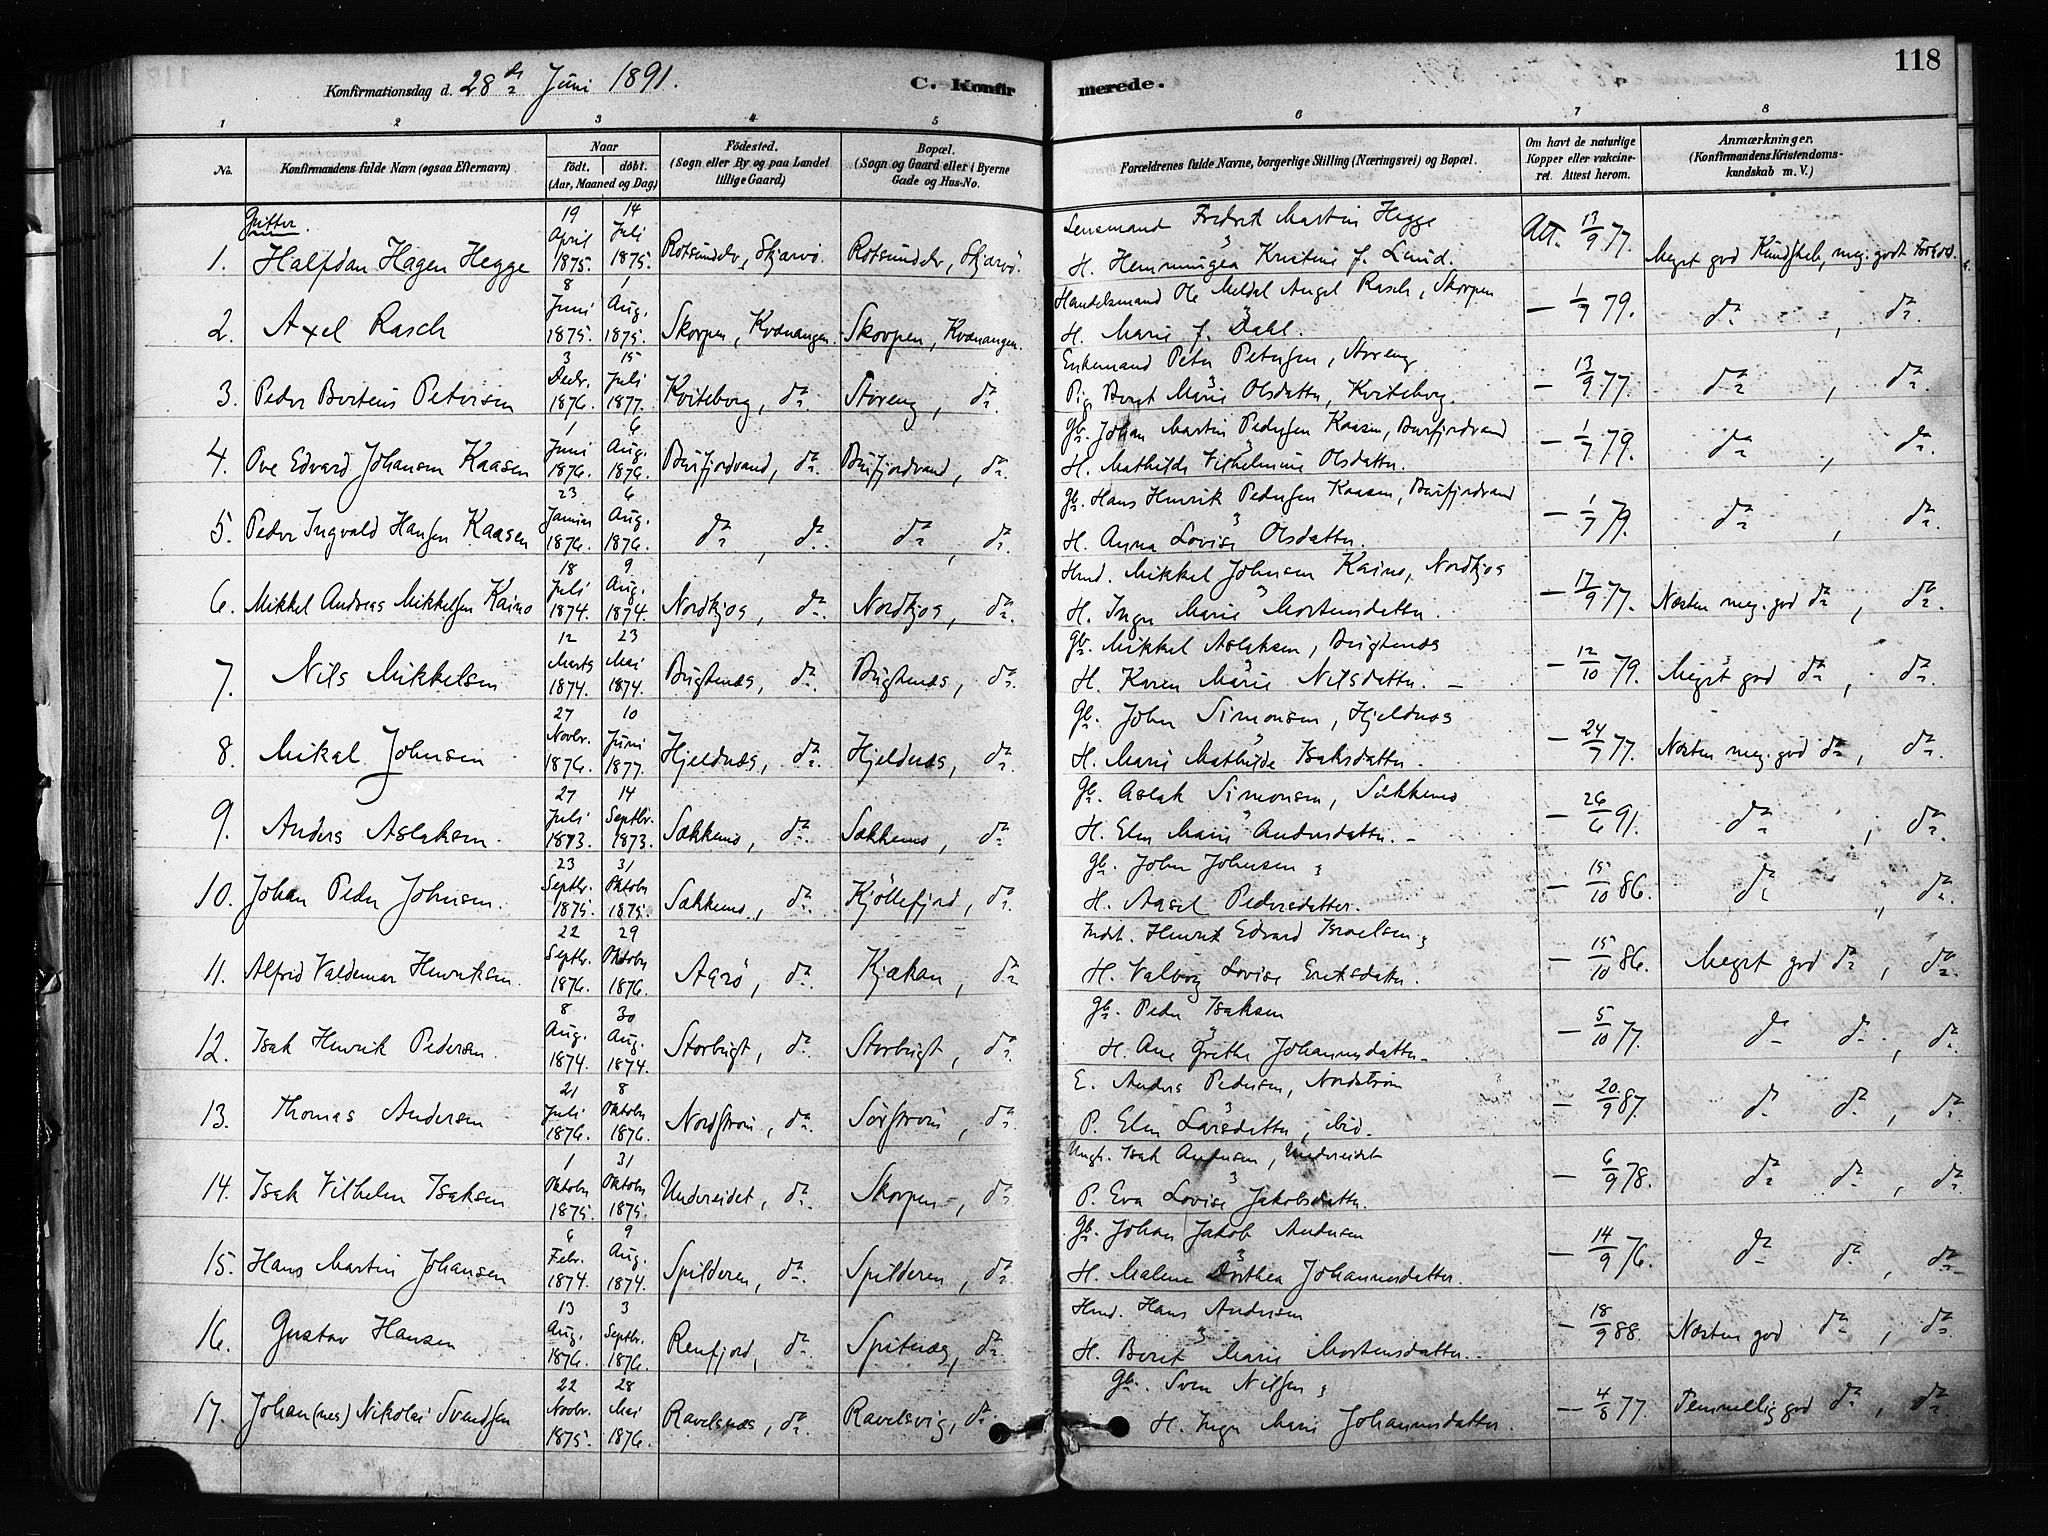 118
Konfirmationsdag d. 28de Juni 1891.
C. Konfirmerede.
1 2 3 4 5 6 7 8
No.
Konfirmandens fulde Navn (ogsaa Efternavn).
Naar
födt. döbt.
(Aar, Maaned og Dag)
Födested.
(Sogn eller By og paa Landet
tillige Gaard)
Bopæl.
(Sogn og Gaard eller i Byerne
Gade og Hus-No.
Forældrenes fulde Navne, borgerlige Stilling (Næringsvei) og Bopæl.
Om havt de naturlige
Kopper eller vakcine-
ret. Attest herom.
Anmærkninger.
(Konfirmandens Kristendoms-
kundskab m. V.)
Gutter.
1. Halfdan Hagen Hegge
19 April 1875. 14 Juli 1875. Rotsundelv, Skjærvö. Rotsundelv, Skjærvö.
Lensmand Fredrik Martin Hegge
H. Hemmingea Kristine f. Lund.
Att. 13/9 77. Meget god Kundskab, meg. godt Forhold.
2. Axel Rasch
8 Juni 1875. 1 Aug. 1875. Skorpen, Kvænangen. Skorpen, Kvænangen.
Handelsmand Ole Meldal Angel Rasch, Skorpen
H. Marie f. Dahl.
— 1/7 79. do , do.
3. Peder Berteus Petersen
3 Decbr. 1876. 15 Juli 1877. Kviteberg, do. Storeng, do.
Enkemand Peter Petersen, Storeng
Pig. Beret Marie Olsdatter, Kviteberg.
— 13/9 77. do , do.
4. Ove Edvard Johansen Kaasen
1 Juni 1876. 6 Aug. 1876. Burfjordvand, do. Burfjordvand, do.
Gbr. Johan Martin Pedersen Kaasen, Burfjordvand
H. Mathilde Vilhelmine Olsdatter.
— 1/7 79. do , do.
5. Peder Ingvald Hansen Kaasen
23 Januar 1876. 6 Aug. 1876. do , do. do , do.
Gbr. Hans Henrik Pedersen Kaasen, Burfjordvand
H. Anna Lovise Olsdatter.
— 1/7 79. do , do.
6. Mikkel Andreas Mikkelsen Kaino
18 Juli 1874. 9 Aug. 1874. Nordkjos, do. Nordkjos, do.
Hmd. Mikkel Johnsen Kaino, Nordkjos
H. Inger Marie Mortensdatter.
— 17/9 77. Næsten meg. god do , do.
7. Nils Mikkelsen
12 Marts 1874. 23 Mai 1874. Bugtenæs, do. Bugtenæs, do.
Gbr. Mikkel Aslaksen, Bugtenæs
H. Karen Marie Nilsdatter. —
— 12/10 79. Meget god do , do.
8. Mikal Johnsen
27 Novbr. 1876. 10 Juni 1877. Hjeldnæs, do. Hjeldnæs, do.
Gbr. John Simonsen, Hjeldnæs
H. Marie Mathilde Isaksdatter.
— 24/7 77. Næsten meg. god do , do.
9. Anders Aslaksen.
27 Juli 1873. 14 Septbr. 1873. Sækkemo, do. Sækkemo, do
Gbr. Aslak Simonsen, Sækkemo
H. Elen Marie Andersdatter. —
— 26/6 91. do ; do.
10. Johan Peder Johnsen.
23 Septbr. 1875. 31 Oktober 1875. Sækkemo, do. Kjöllefjord, do.
Gbr. John Johnsen &
H. Aasel Pedersdatter.
— 15/10 86. do , do.
11. Alfred Valdemar Henriksen.
22 Septbr. 1876. 29 Oktober 1876. Aarö, do. Kjækan, do
Indst. Henrik Edvard Israelsen &
H. Valborg Lovise Eriksdatter.
— 15/10 86. Meget god do , do.
12. Isak Henrik Pedersen.
8 Aug. 1874. 30 Aug. 1874. Storbugt, do. Storbugt, do.
Gbr. Peder Isaksen
H. Ane Grethe Johannesdatter.
— 5/10 77. do do , do.
13. Thomas Andersen
21 Juli 1876. 8 Oktober 1876. Nordström, do. Sörström, do.
E. Anders Pedersen, Nordström
P. Elen Larsdatter, ibid.
— 20/9 87. do do , do
14. Isak Vilhelm Isaksen
1 Oktober 1875. 31 Oktober 1875. Undereidet, do. Skorpen, do
Ungk. Isak Andersen, Undereidet
P. Eva Lovise Jakobsdatter.
— 6/9 78. do do , do
15. Hans Martin Johansen
6 Febr. 1874. 9 Aug. 1874. Spilderen, do. Spilderen, do.
Gbr. Johan Jakob Andersen
H. Malene Dorthea Johannesdatter.
— 14/9 76. do do , do
16. Gustav Hansen
13 Aug. 1876. 3 Septbr. 1876. Renfjord, do. Spitnæs, do.
Hmd. Hans Andersen
H. Berit Marie Mortensdatter.
— 18/9 88. Næsten god do , do.
17. Johan(nes) Nikolai Svendsen
22 Novbr. 1875. 28 Mai 1876. Ravelsnæs, do. Ravelsvig, do
Gbr. Sven Nilsen &
H. Inger Marie Johannesdatter.
— 4/8 77. Temmelig god do , do.